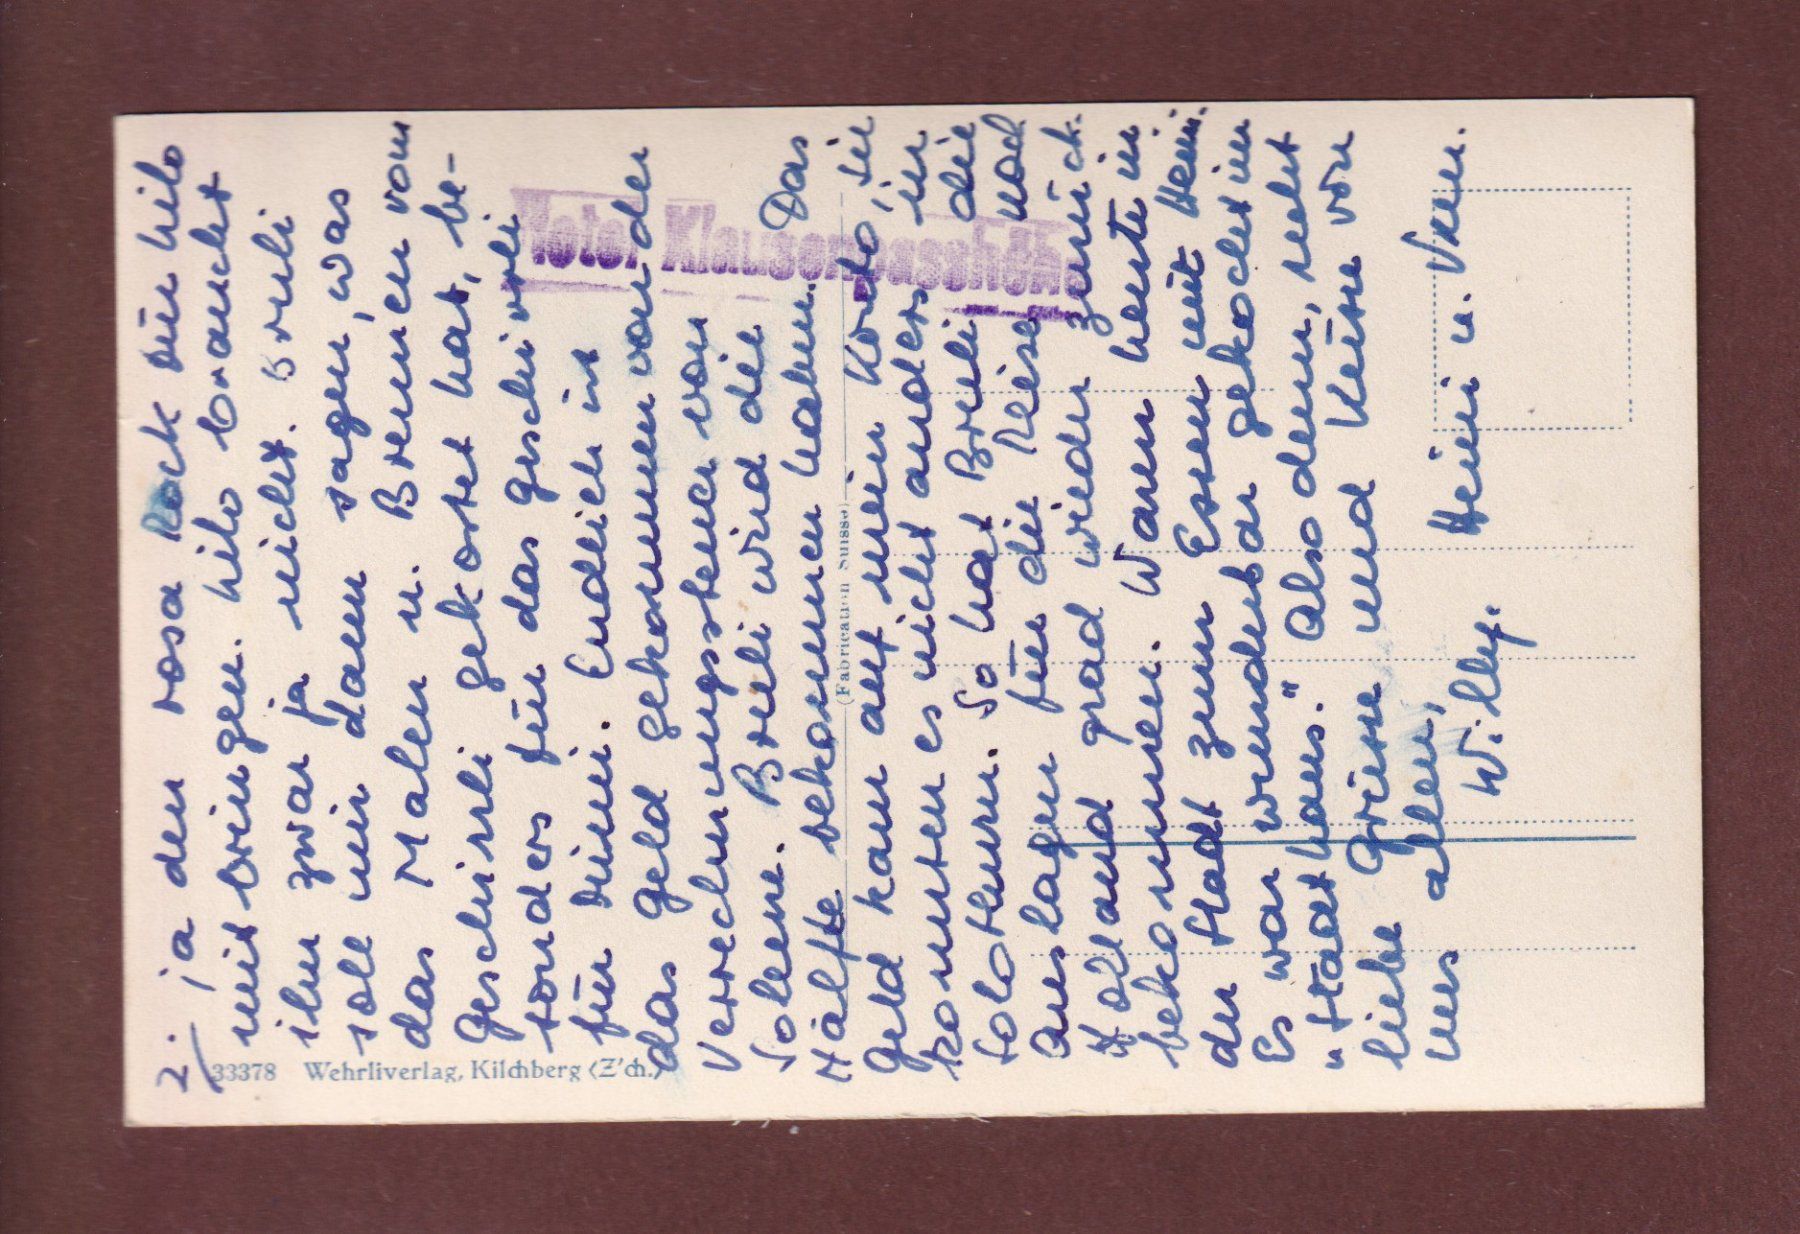 2. ja den rosa Rock den hilo
mitbringen. hilo braucht
ihn zwar ja nicht. Breli
soll mir dann sagen, was
das Malen u. Brennen vom
Geschirrli gekostet hat, be-
sonders für das Geschirrli
für Mimi. Endlich ist
das Geld gekommen von der
Verrechnungssteuer von
Solenn. Breli wird die
Hälfte bekommen haben. Das
Geld kam auf mein Konto, sie
konnten es nicht anders in
Solothurn. So hat Breli die
Auslagen für die Reise nach
Holland grad wieder zurück-
bekommen. Waren heute in
der Stadt zum Essen mit Heini.
Es war wunderbar gekocht im
"Stadthaus." Also denn, recht
liebe Grüsse und Küsse von
uns allen,
W. Uly. Heini u. Vren.
Hotel Klausenpasshöhe
(Fabrication Suisse)
33378 Wehrliverlag, Kilchberg (Z'ch.)